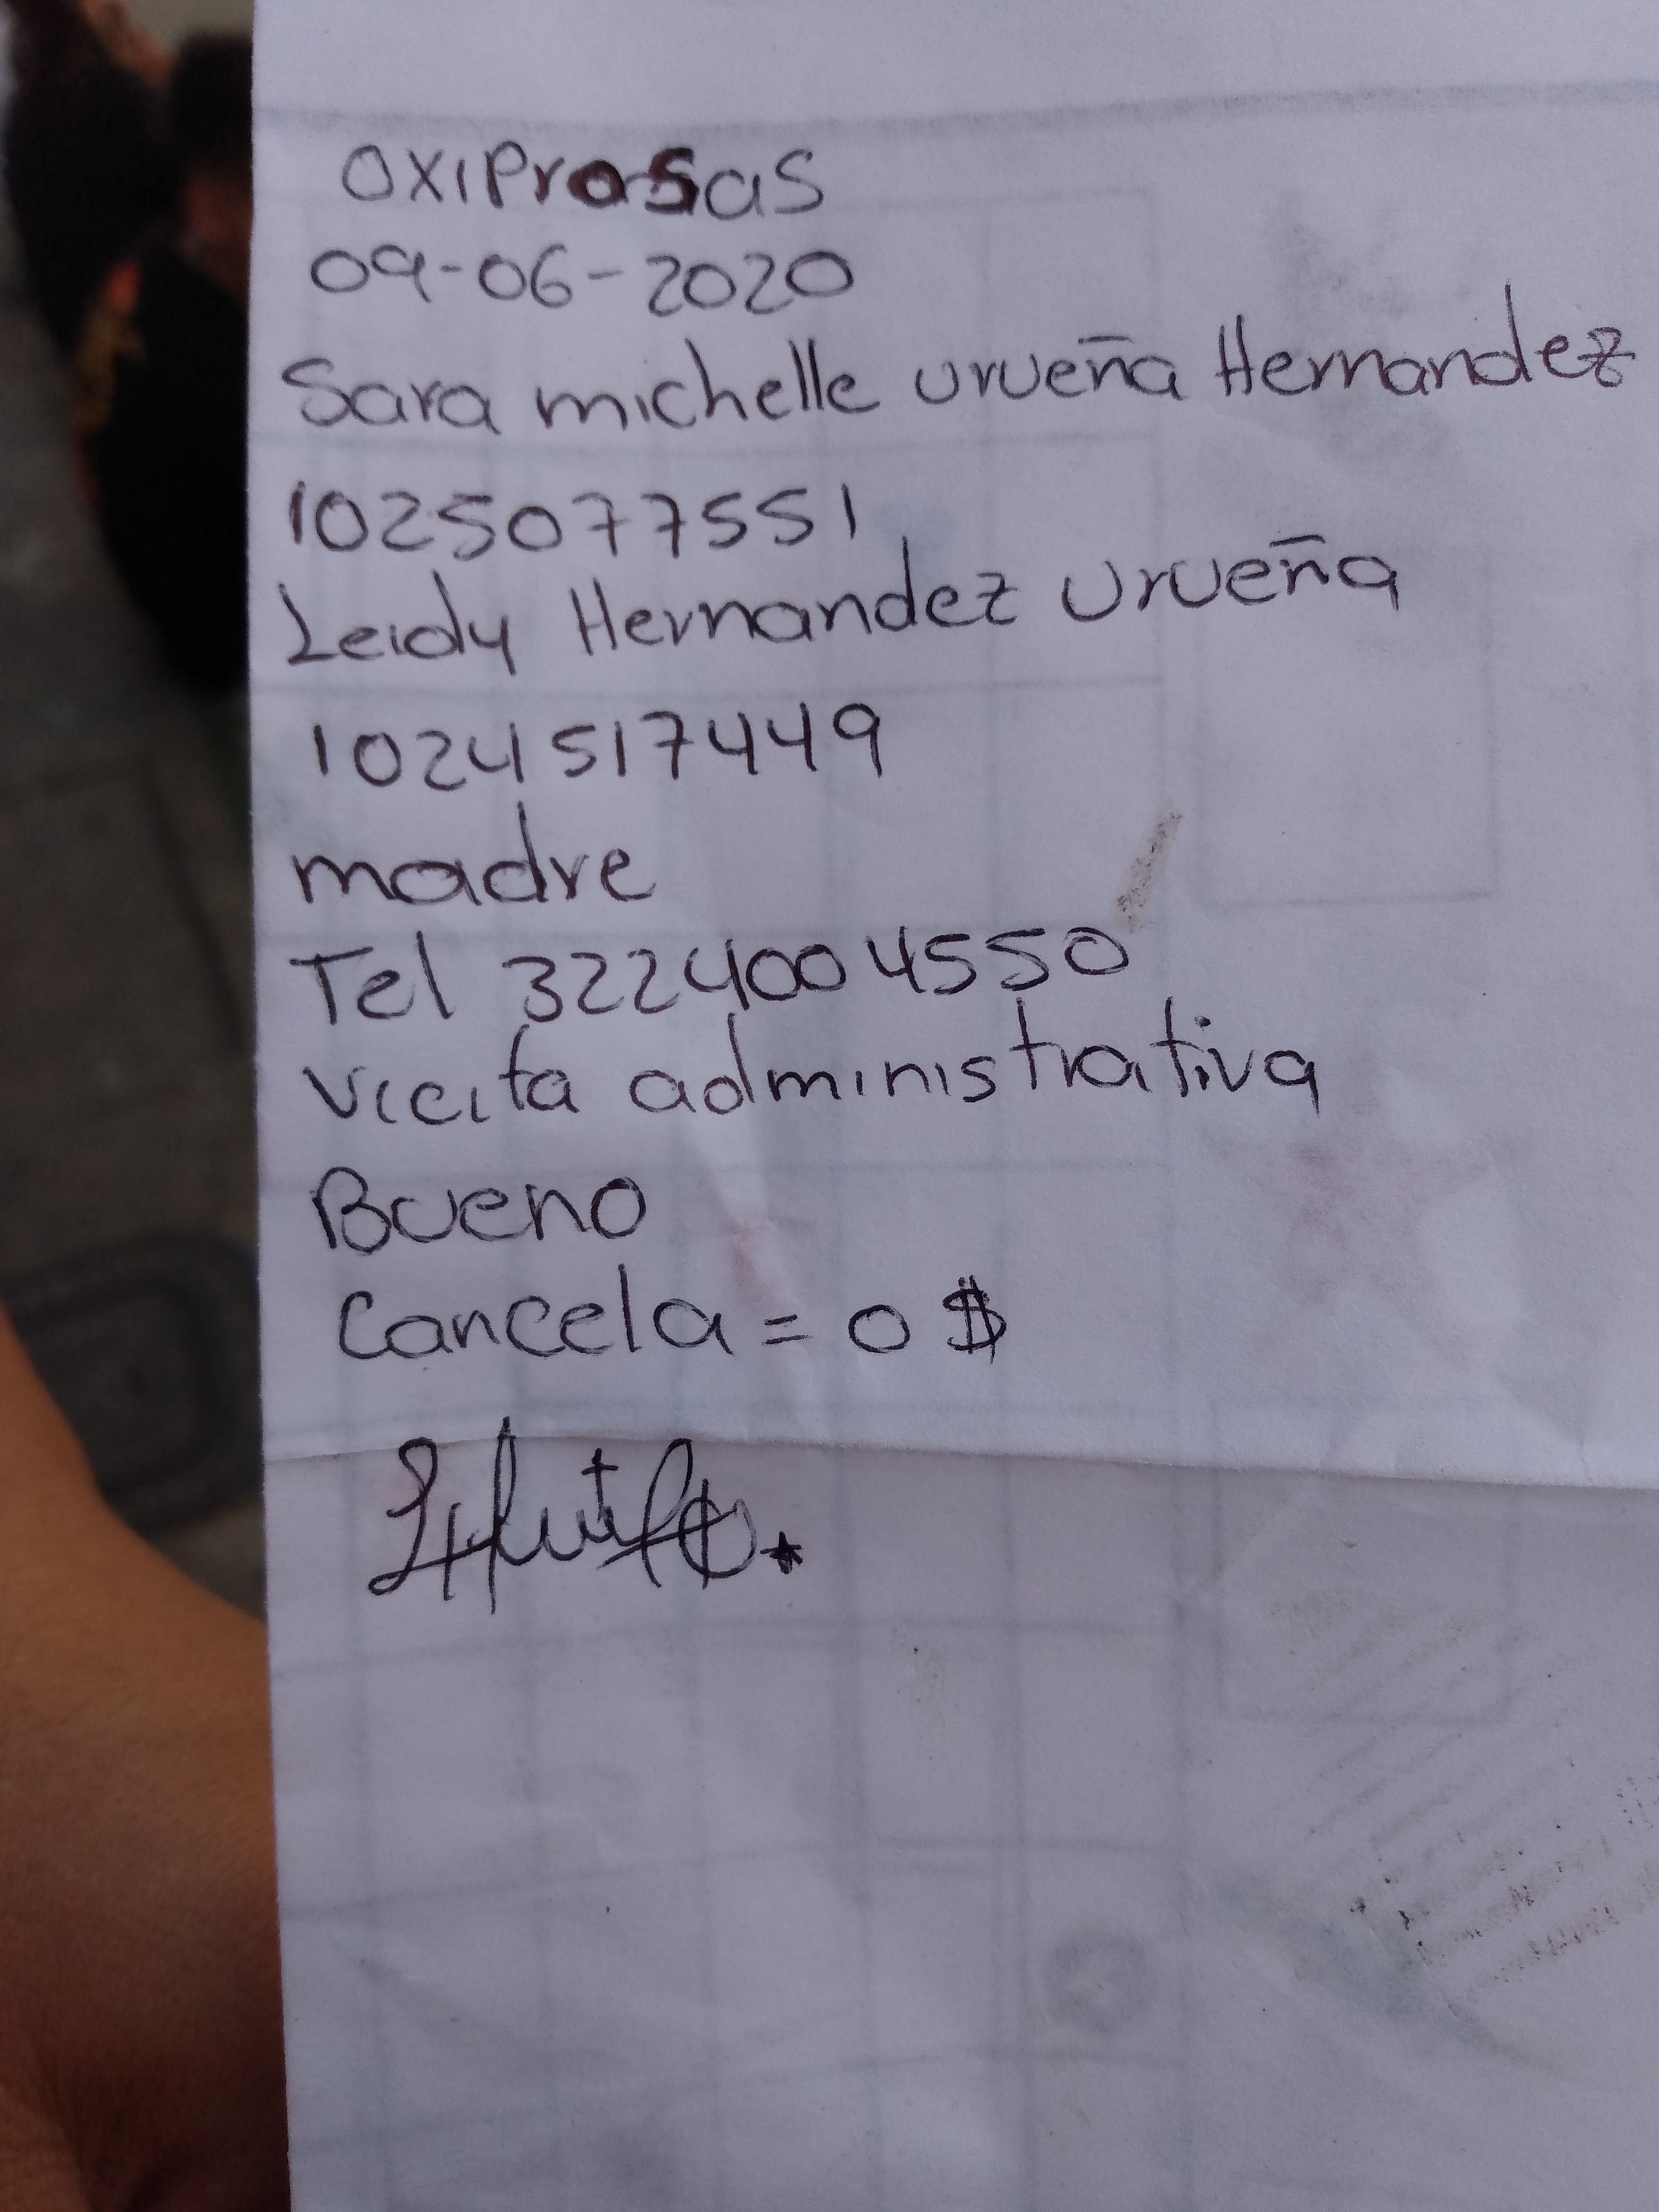 OXIProSas
09-06-2020
Sara michelle urueña Hernandez
1025077551
Leidy Hernandez urueña
1024517449
madre
Tel 3224004550
Vicita administrativa
Bueno
Cancela = 0 $